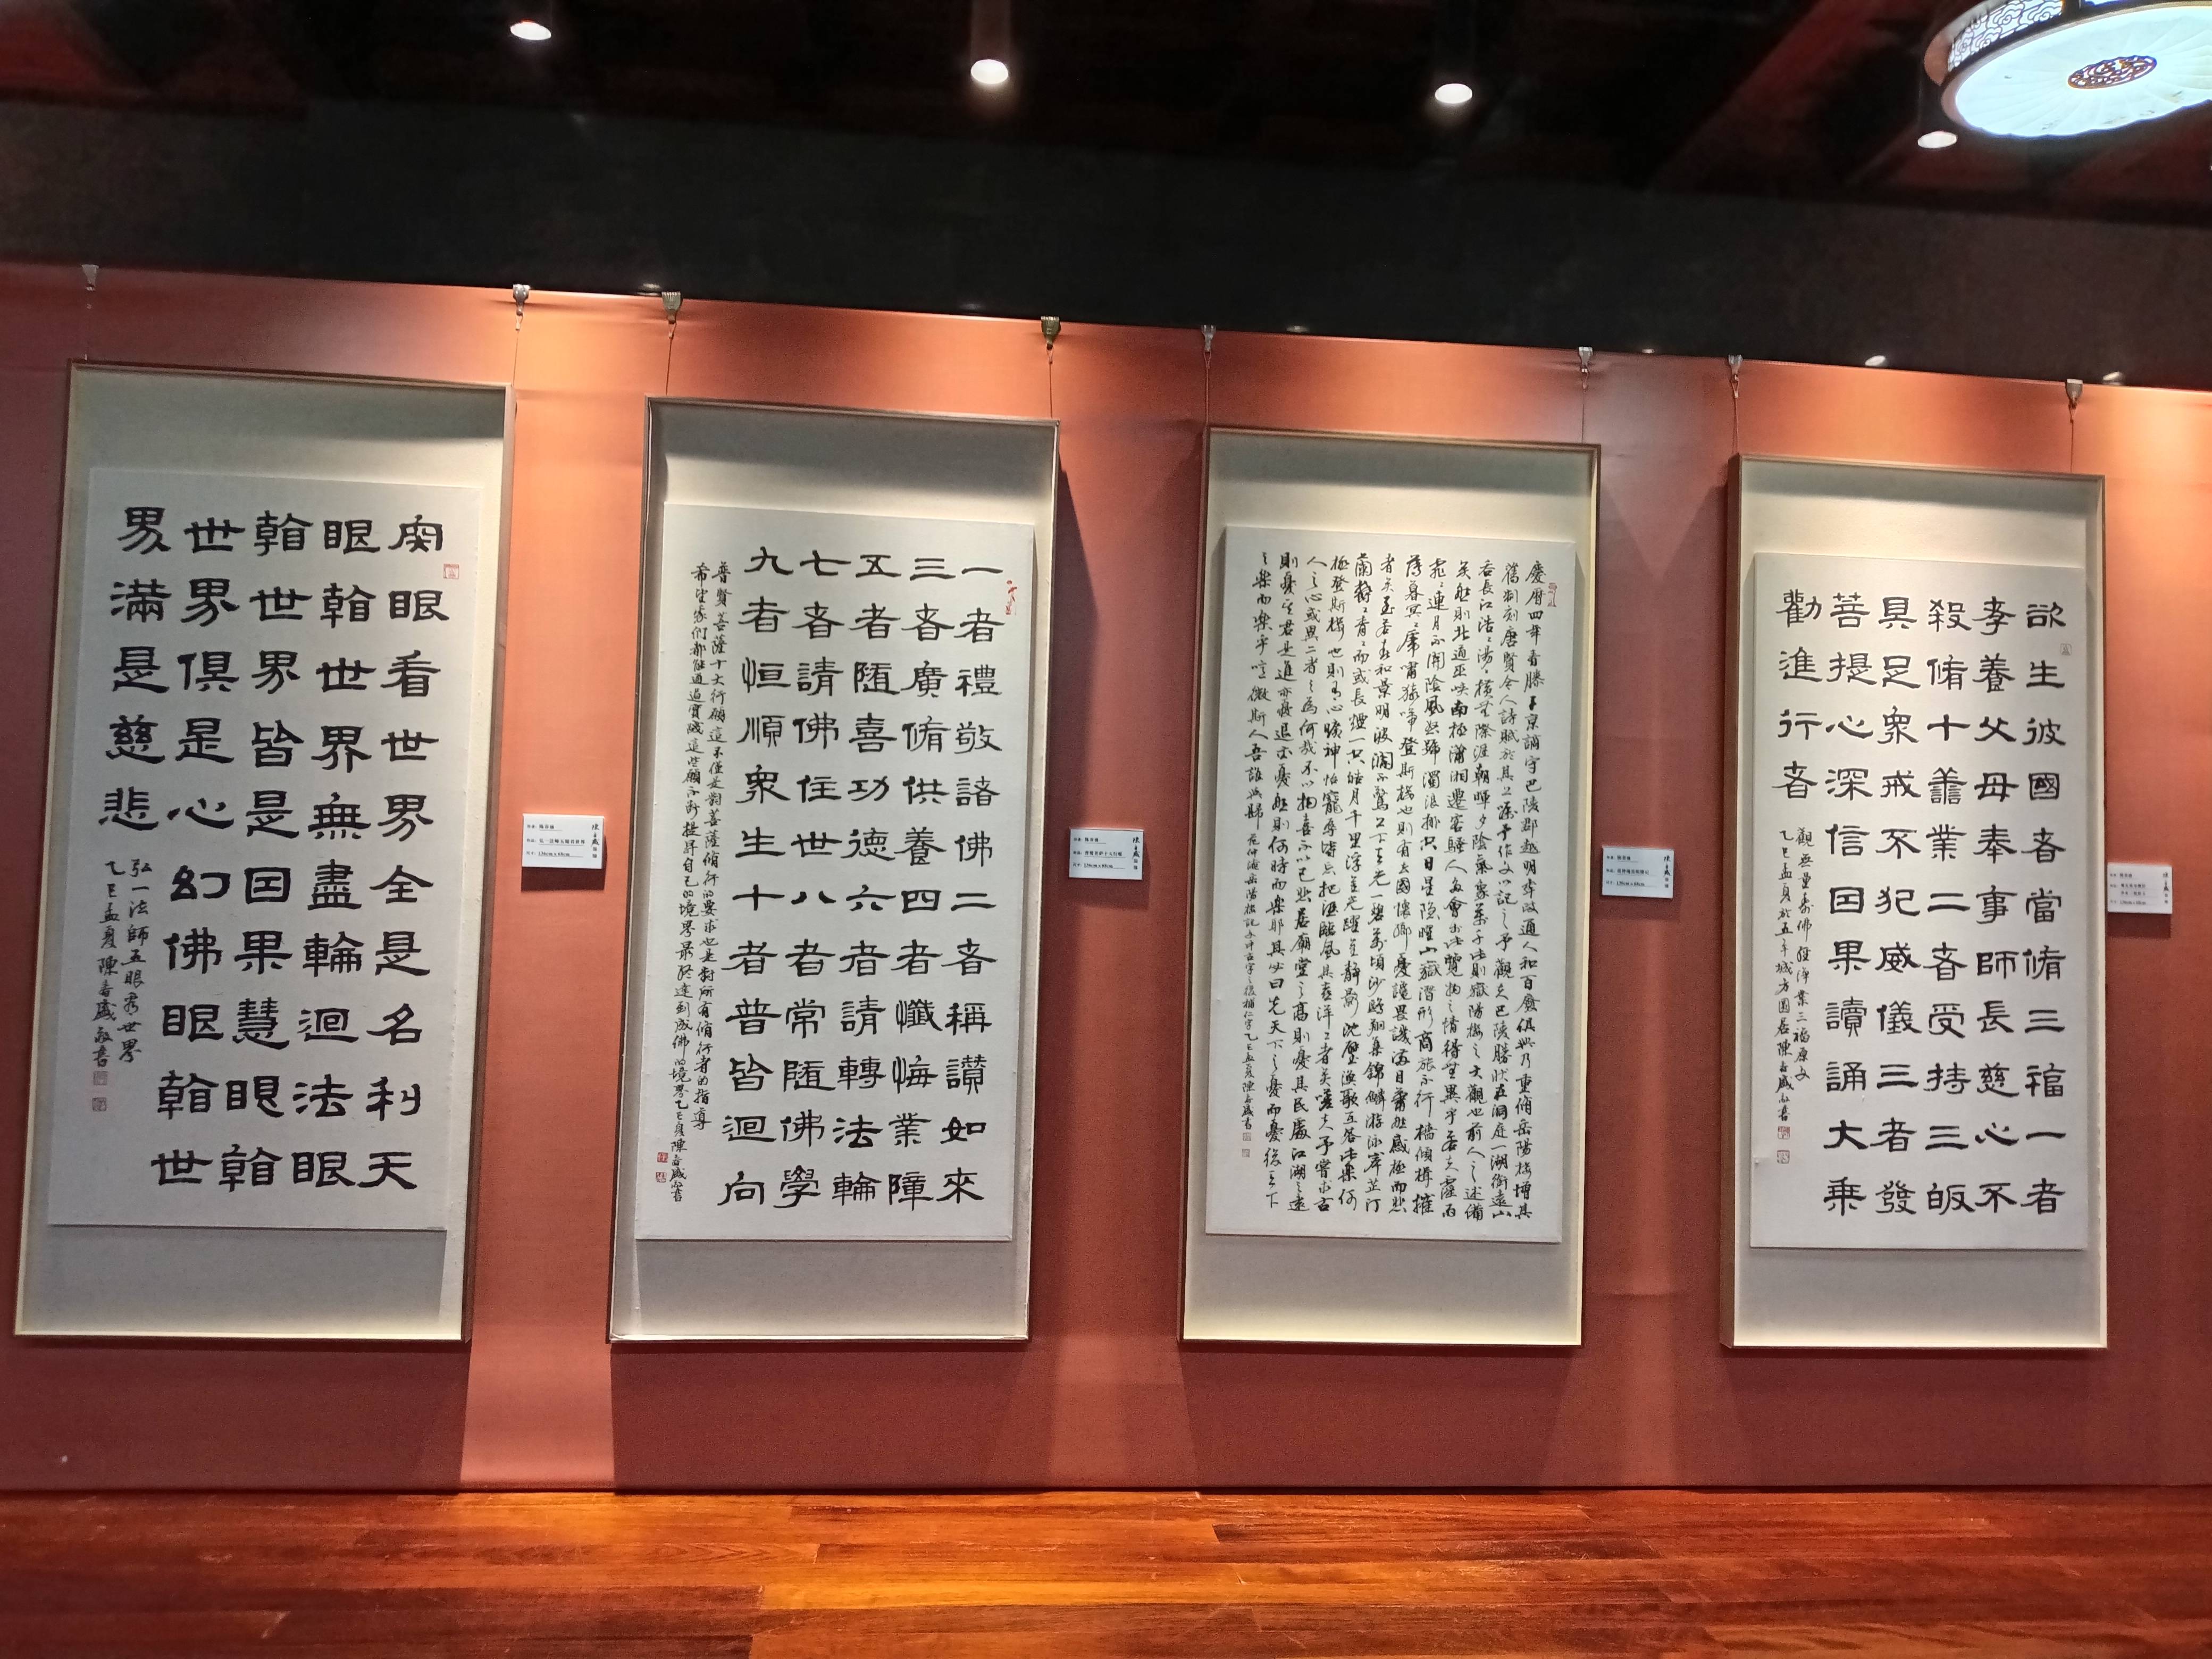 肉眼看世界全是名利天
眼看世界無盡輪迴法眼
看世界皆是因果慧眼看
世界俱是心幻佛眼看世
界滿是慈悲
弘一法師五眼看世界
乙巳孟夏陳春盛敬書
一者禮敬諸佛二者稱讚如來
三者廣脩供養四者懺悔業障
五者隨喜功德六者請轉法輪
七者請佛住世八者常隨佛學
九者恒順衆生十者普皆迴向
普賢菩薩十大行願這不僅是對菩薩脩行的要求也是對所有脩行者的指導
希望家们都能通過實踐這些願不斷提昇自己的境界最終達到成佛的境界乙巳夏陳春盛書
慶曆四年春滕子京謫守巴陵郡越明年政通人和百廢俱興乃重脩岳陽樓增其
舊制刻唐賢今人詩賦於其上屬予作文以記之予觀夫巴陵勝狀在洞庭一湖銜遠山
吞長江浩浩湯湯橫無際涯朝暉夕陰氣象萬千此則嶽陽樓之大觀也前人之述備
矣然則北通巫峽南極瀟湘遷客騷人多會於此覽物之情得無異乎若夫霪雨
霏霏連月不開陰風怒號濁浪排空日星隱曜山嶽潛形商旅不行檣傾楫摧
薄暮冥冥虎嘯猿啼登斯樓也則有去國懷鄉憂讒畏譏滿目蕭然感極而悲
者矣至若春和景明波瀾不驚上下天光一碧萬頃沙鷗翔集錦鱗游泳岸芷汀
蘭郁郁青青而或長煙一空皓月千里浮光躍金靜影沈璧漁歌互答此樂何
極登斯樓也則有心曠神怡寵辱皆忘把酒臨風其喜洋洋者矣嗟夫予嘗求古
人之心或異二者之為何哉不以物喜不以己悲居廟堂之高則憂其民處江湖之遠
則憂其君是進亦憂退亦憂然則何時而樂耶其必曰先天下之憂而憂後天下
之樂而樂乎噫微斯人吾誰與歸 范仲淹岳陽樓記文中古字之後補仁字乙巳孟夏陳春盛書
欲生彼國者當脩三福一者
孝養父母奉事師長慈心不
殺脩十善業二者受持三皈
具足衆戒不犯威儀三者發
菩提心深信因果讀誦大乘
勸進行者
觀無量壽佛經淨業三福原文
乙巳孟夏於五羊城方圓居陳春盛書